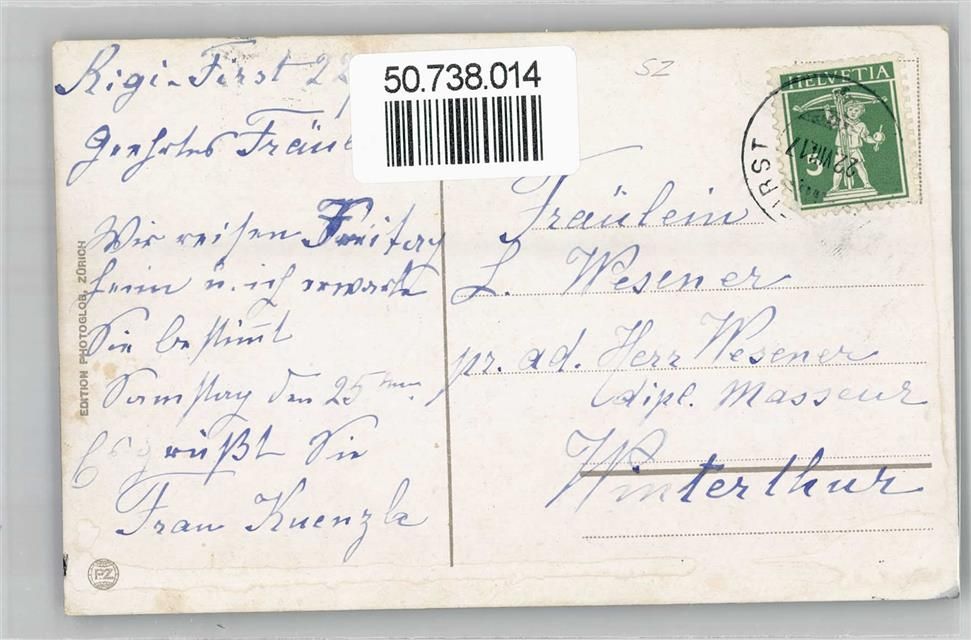 Rigi-First 22
50.738.014
SZ
HELVETIA
5
FIRST
22.VIII.17
Geehrtes Fräul
Wir reisen Freitag
heim u. ich erwarte
Sie bestimmt
Samstag den 25
Es grüßt Sie
Frau Kuenzle
Fräulein
L. Wesener
pr. ad. Herr Wesener
dipl. Masseur
Winterthur
EDITION PHOTOGLOB, ZÜRICH
PZ